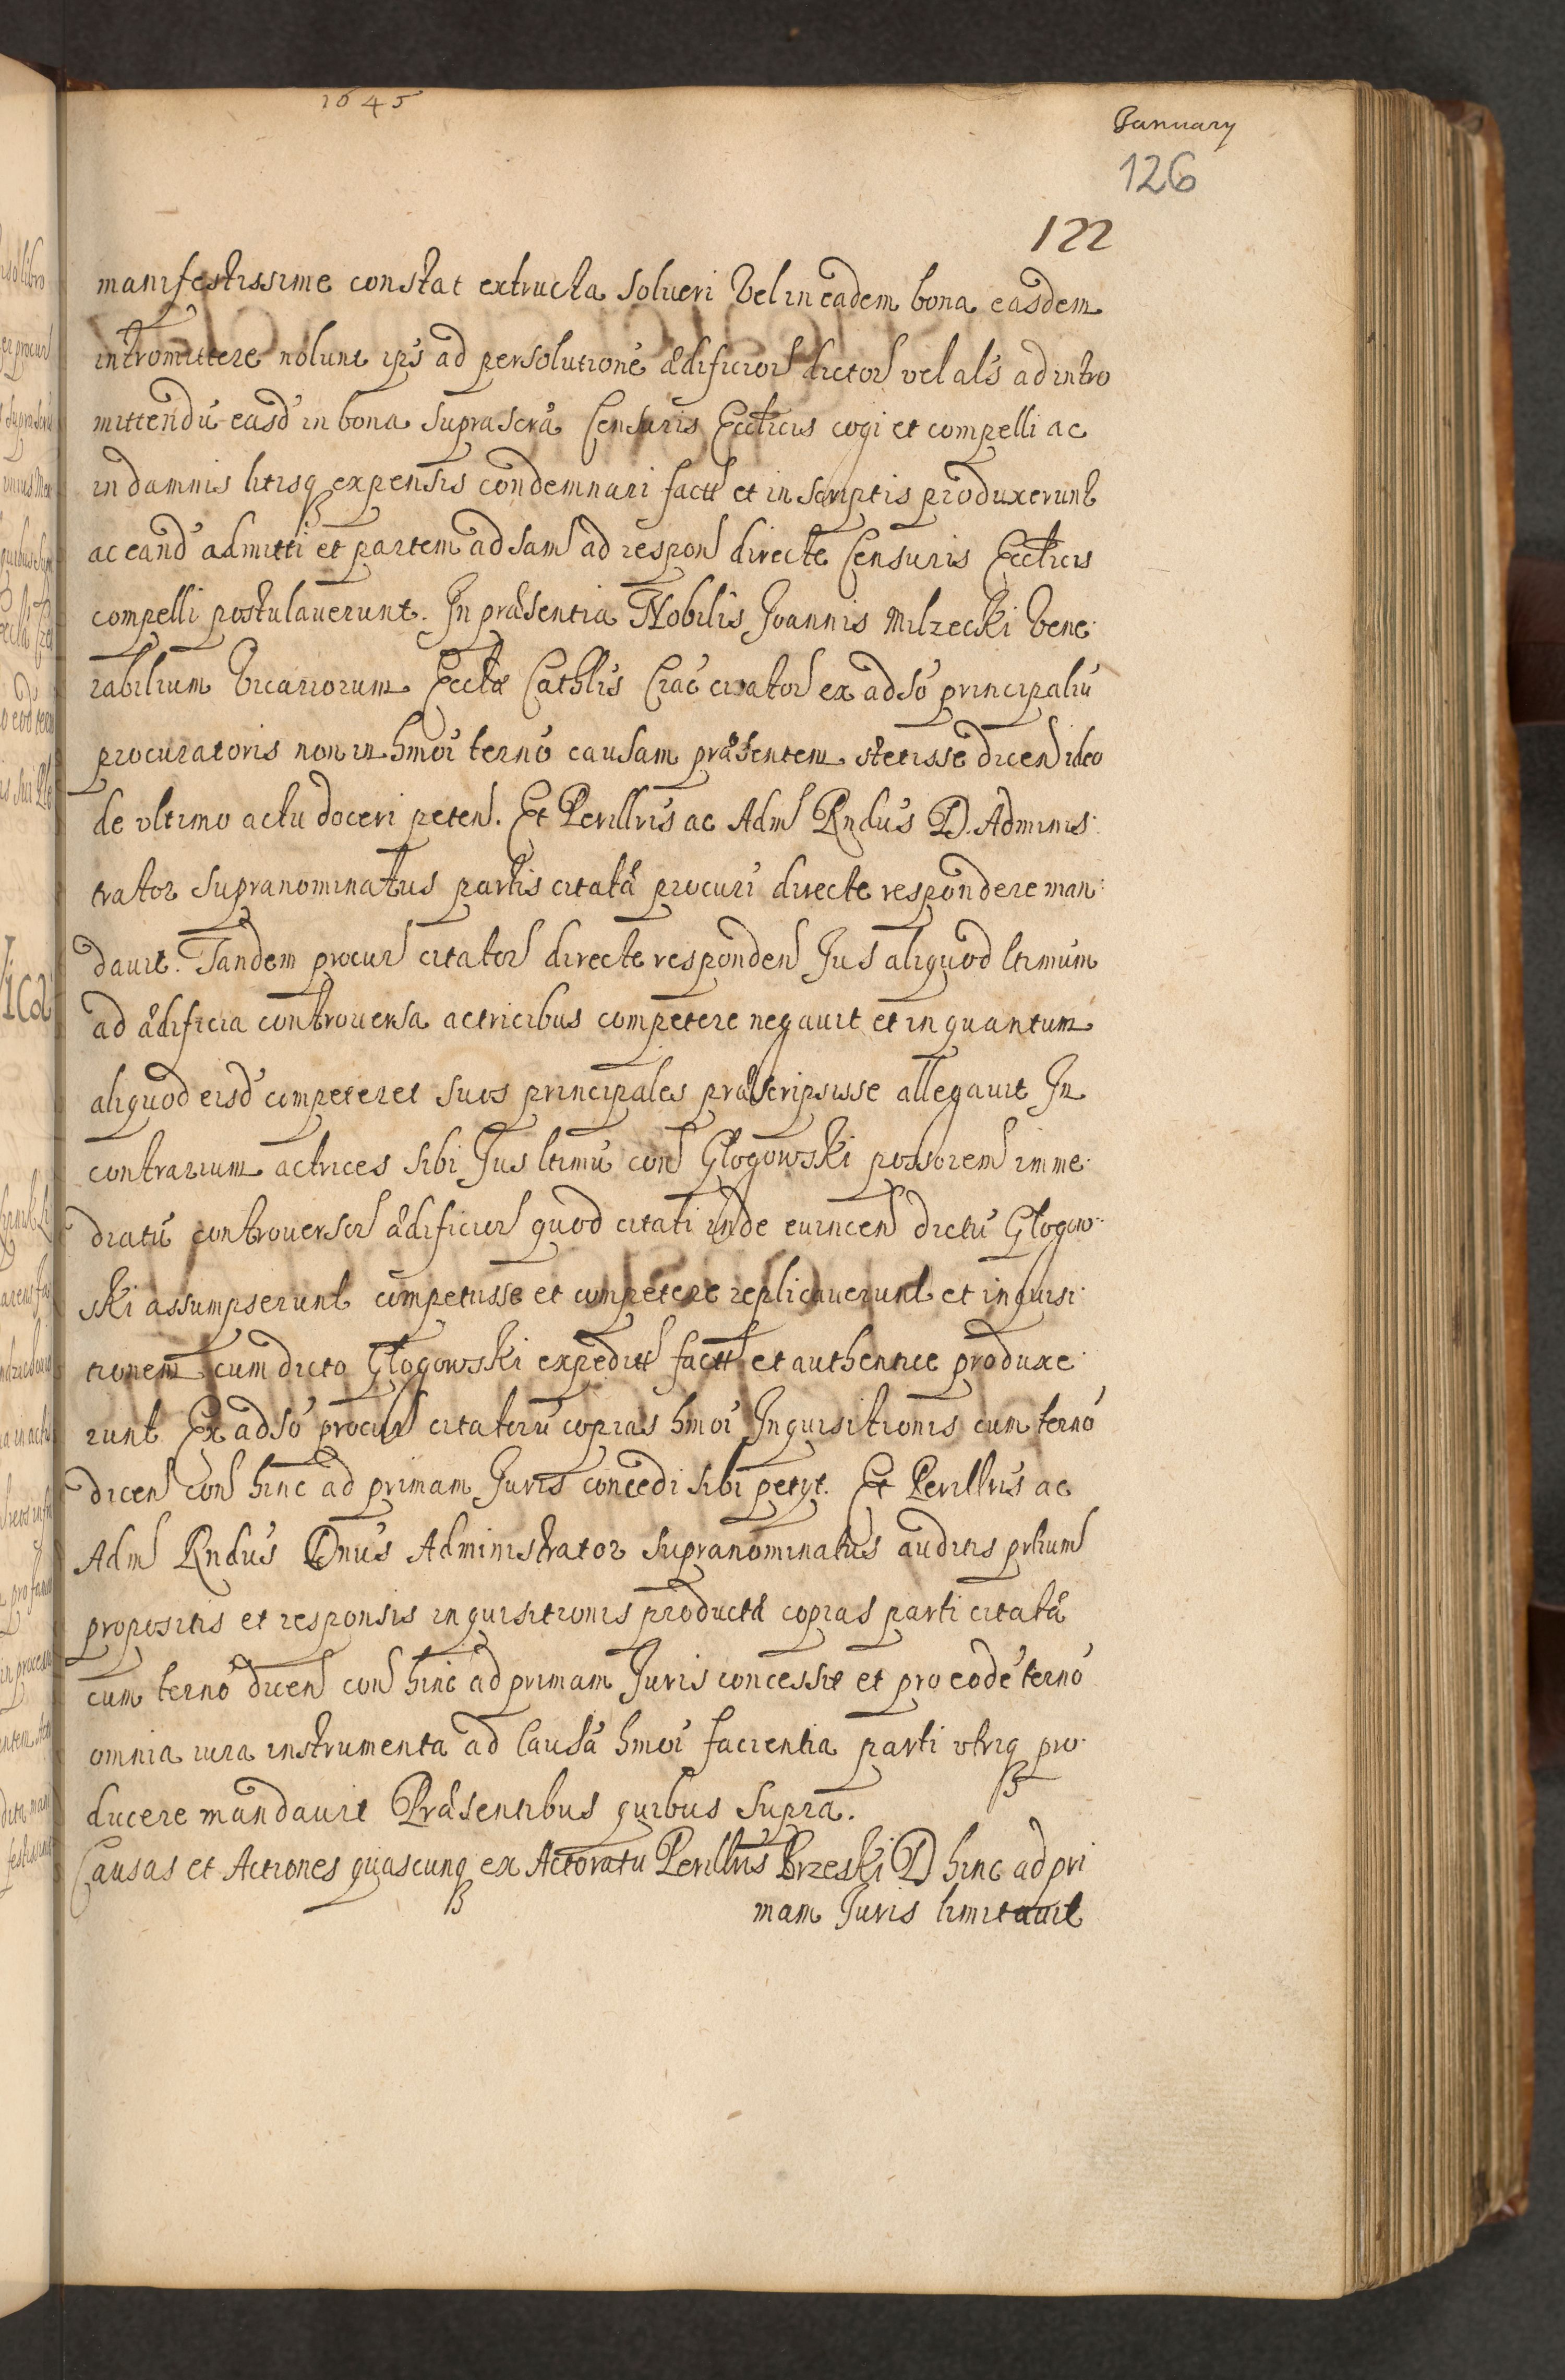 1645
January
126
122
manifestissime constat extructa solueri Vel in eadem bona easdem
intromittere nolunt ips ad persolutione ædificior dictor vel als ad intro
mittendu easd in bona suprascra Censuris Ecclicis cogi et compelli ac
in damnis litisq expensis condemnari fact et in scriptis produxerunt
ac eand admitti et partem adsam ad respon directe Censuris Ecclicis
compelli postulauerunt. In præsentia Nobilis Joannis Milzecki Vene
rabilium Vicariorum Ecclæ Cathlis Crac citator ex adso principaliu
procuratoris non in hmoi terno causam præsentem stetisse dicen ideo
de vltimo actu doceri peten. Et Perillris ac Adm Rndus D. Adminis
trator supranominatus partis citatæ procuri directe respondere man
dauit. Tandem procur citator directe responden Jus aliquod ltimum
ad ædificia controuersa actricibus competere negauit et in quantum
aliquod eisd competeret suos principales præscripsisse allegauit In
contrarium actrices sibi Jus ltimu con Głogowski possorem imme
diatu controuersor ædificior quod citati inde euincen dictu Głogow
ski assumpserunt competisse et competere replicauerunt et inquisi
tionem cum dicto Głogowski expedit fact et authentice produxe
runt Ex adso procur citatoru copias hmoi Inquisitionis cum terno
dicen con hinc ad primam Juris concedi sibi petyt. Et Perillris ac
Adm Rndus Dnus Administrator supranominatus auditis prtium
propositis et responsis inquisitionis productæ copias parti citatæ
cum terno dicen con hinc ad primam Juris concessit et pro eode terno
omnia iura instrumenta ad Causa hmoi facientia parti vtriq pro
ducere mandauit Præsentibus quibus supra.
Causas et Actiones quascunq ex Actoratu Perillris Brzeski D hinc ad pri
mam Juris limitauit